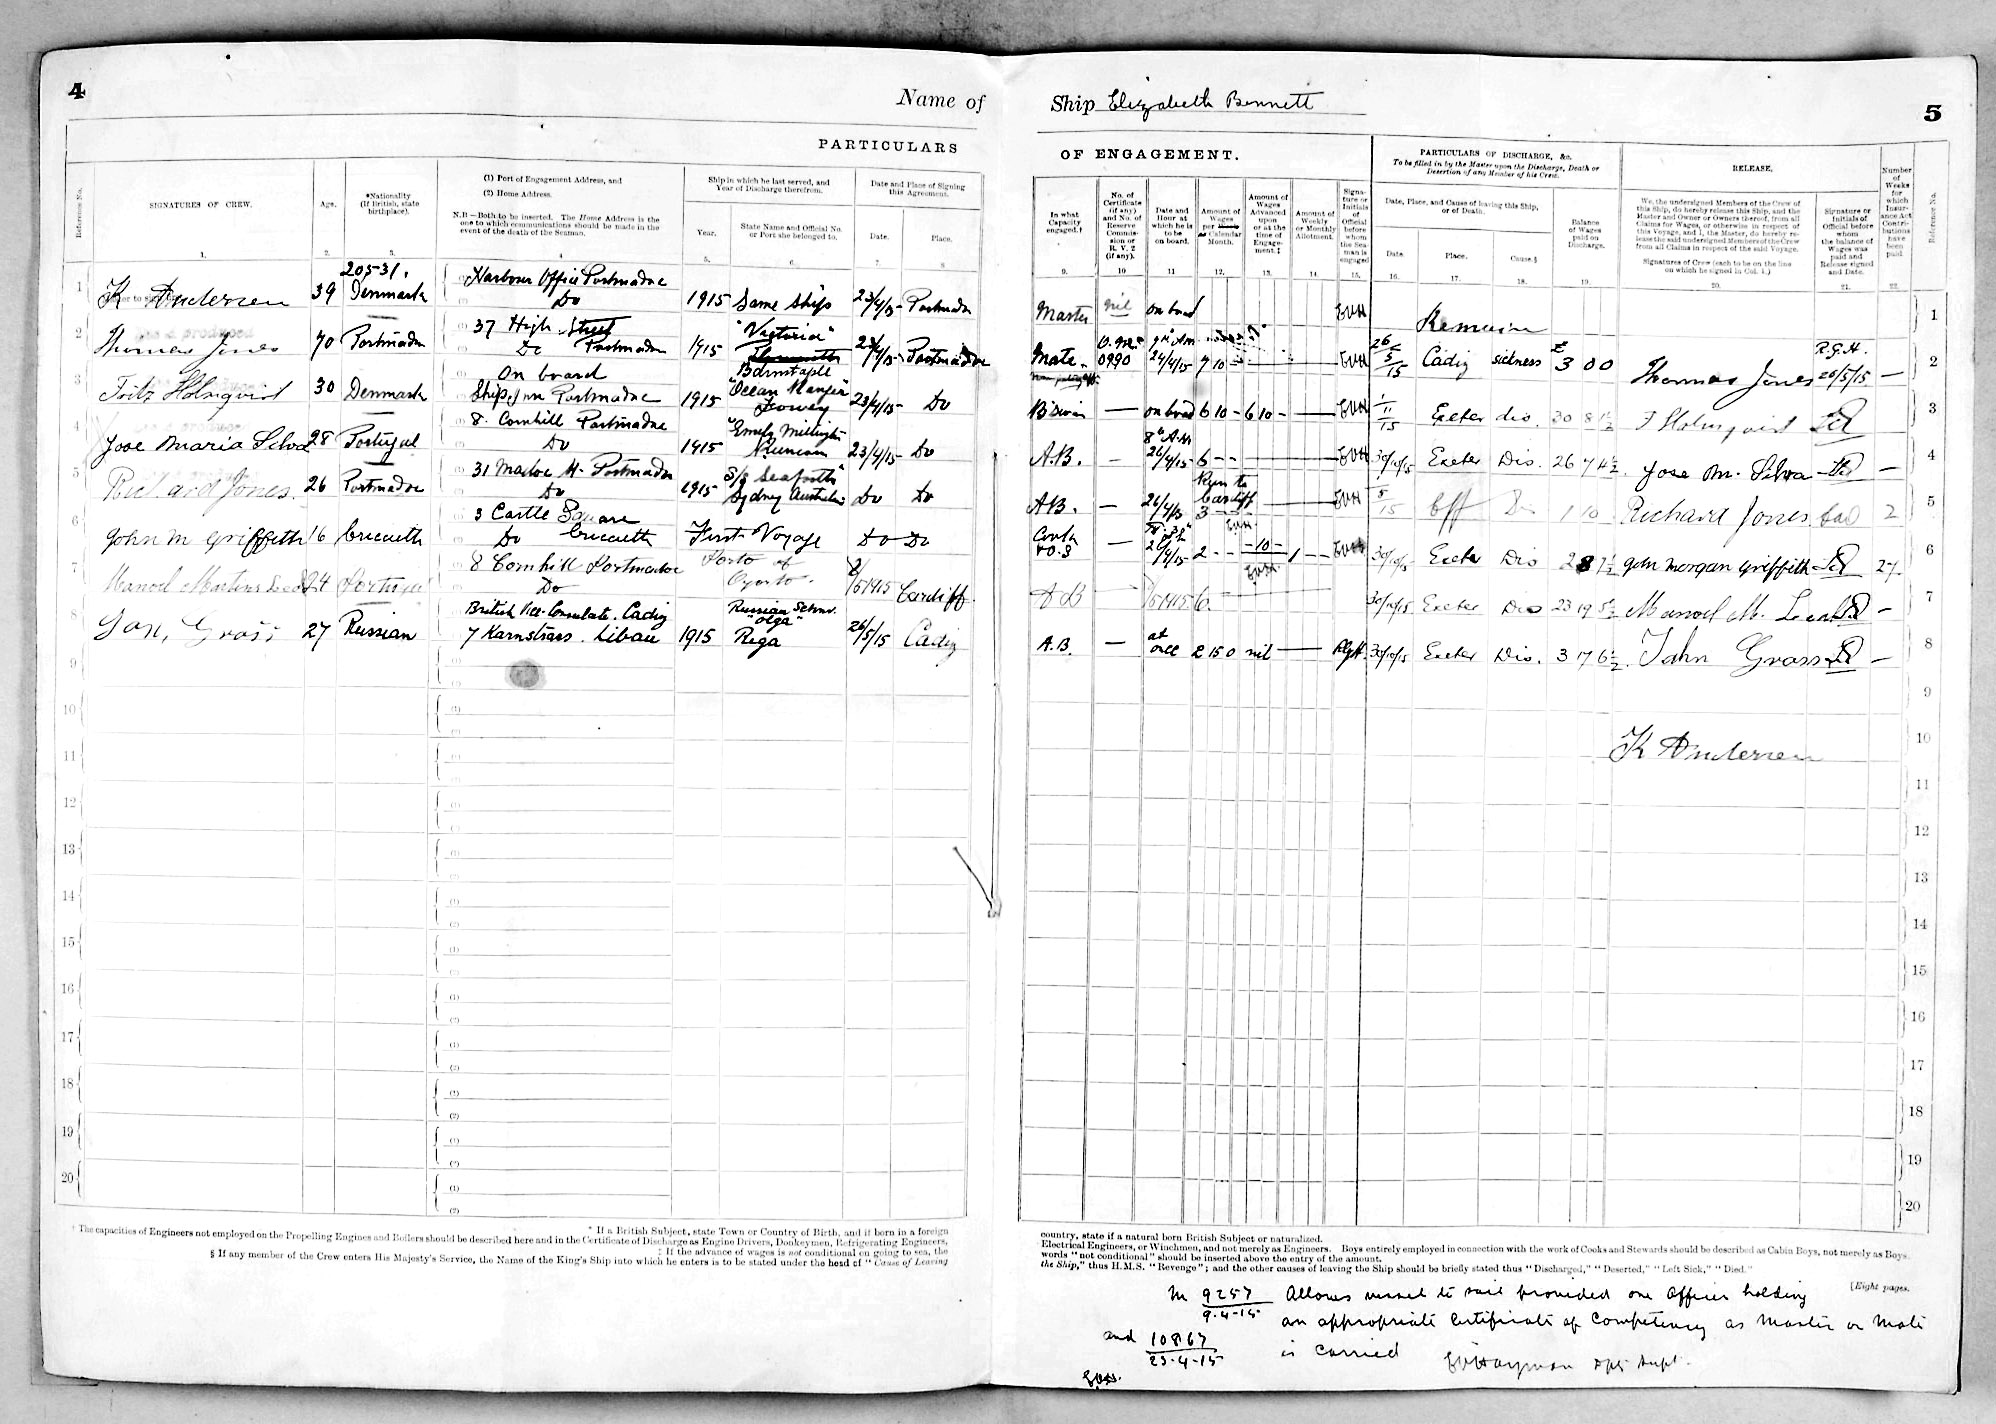 4
Name of
PARTICULARS
Reference No.
SIGNATURES OF CREW.
Age.
*Nationality
(If British, state
birthplace).
(1) Port of Engagement Address, and
(2) Home Address.
N.B—Both to be inserted. The Home Address is the
one to which communications should be made in the
event of the death of the Seaman.
Ship in which he last served, and
Year of Discharge therefrom.
Year.
State Name and Official No.
or Port she belonged to.
Date and Place of Signing
this Agreement.
Date.
Place.
1. 2. 3. 4 5. 6. 7. 8
20531.
1 K Andersen 39 Denmark
Harbour Office Portmadoc
Do
1915 Same Ship 23/4/15 Portmadoc
2 Thomas Jones 70 Portmadoc
37 High Street
Do Portmadoc
1915 "Victoria"
Barnstaple
23/4/15 Portmadoc
3 Fritz Holmqvist 30 Denmark
On board
Ship Inn Portmadoc
1915 "Ocean Ranger"
Fowey
23/4/15 Do
4 Jose Maria Silva 28 Portugal
8. Cornhill Portmadoc
Do
1915 "Emely Millington"
Runcorn
23/4/15 Do
5 Richard Jones. 26 Portmadoc
31 Madoc St. Portmadoc
Do
1915 S/S Seaforth"
Sydney Australia
Do Do
6 John M Griffith 16 Criccieth
3 Castle Square
Do Criccieth
First Voyage Do Do
7 Manoel Martins 24 Portugal
8 Cornhill Portmadoc
Do
Porto of
Oporto.
1915 Cardiff
8 Gross 27 Russian
British Vice-Consulate. Cadiz
7 Karnstrass. Libau
1915 Russian Schnr.
"Olga"
Rega
26/5/15 Cadiz
9
10
11
12
13
14
15
16
17
18
19
20
† The capacities of Engineers not employed on the Propelling Engines and Boilers should be described here and in the Certificate of Discharge as Engine Drivers, Donkeymen, Refrigerating Engineers,
* If a British Subject, state Town or Country of Birth, and if born in a foreign
‡ If the advance of wages is not conditional on going to sea, the
§ If any member of the Crew enters His Majesty's Service, the Name of the King's Ship into which he enters is to be stated under the head of "Cause of Leaving
Ship Elizabeth Bennett
5
OF ENGAGEMENT.
PARTICULARS OF DISCHARGE, &c.
To be filled in by the Master upon the Discharge, Death or
Desertion of any Member of his Crew.
RELEASE.
Number
of
Weeks
for
which
Insur-
ance Act
Contri-
butions
have
been
paid
In what
Capacity
engaged.†
No. of
Certificate
(if any)
and No. of
Reserve
Commis-
sion or
R. V. 2
(if any).
Date and
Hour at
which he is
to be
on board.
Amount of
Wages
per
Calendar
Month.
Amount of
Wages
Advanced
upon
or at the
time of
Engage-
ment.‡
Amount of
Weekly
or Monthly
Allotment.
Signa-
ture or
Initials
of
Official
before
whom
the Sea-
man is
engaged
Date, Place, and Cause of leaving this Ship,
or of Death.
Date.
Place.
Cause.§
Balance
of Wages
paid on
Discharge.
We, the undersigned Members of the Crew of
this Ship, do hereby release this Ship, and the
Master and Owner or Owners thereof, from all
Claims for Wages, or otherwise in respect of
this Voyage, and I, the Master, do hereby re-
lease the said undersigned Members of the Crew
from all Claims in respect of the said Voyage.
Signatures of Crew (each to be on the line
on which he signed in Col. 1.)
Signature or
Initials of
Official before
whom
the balance of
Wages was
paid and
Release signed
and Date.
Reference No.
9. 10 11 12. 13. 14. 15. 16. 17. 18. 19. 20. 21. 22.
Master nil on board EVH Remain 1
Mate 0990 9 AM 24/4/15 7 10 EVH 26/5/15 Cadiz sickness £3 0 0 Thomas Jones R.G.H. 26/5/15 — 2
B'Swain — on board 6 10 – 6 10 – EVH 1/11/15 Exeter dis. 30 8 1½ F Holmqvist 3
A.B. — 8 AM 26/4/15 6 – – EVH 30/10/15 Exeter Dis. 26 7 4½ Jose M. Silva — 4
Run to
Cardiff
AB. — 26/4/15 3 EVH 5/15 Cff Ds 1 10 Richard Jones 2 5
Cook
& O.S — 26/4/15 2 – – – 10 – 1 – – EVH 30/10/15 Exeter Dis 2 8 7½ John Morgan Griffith 27 6
AB 1915 6 30/10/15 Exeter Dis 23 19 5½ Manoel M. – 7
A.B. — at
once 2 15 0 nil — RGH. 30/10/15 Exeter Dis. 3 17 6½ John Gross — 8
9
K Andersen 10
11
12
13
14
15
16
17
18
19
20
country, state if a natural born British Subject or naturalized.
Electrical Engineers, or Winchmen, and not merely as Engineers. Boys entirely employed in connection with the work of Cooks and Stewards should be described as Cabin Boys, not merely as Boys.
words "not conditional" should be inserted above the entry of the amount.
the Ship," thus H.M.S. "Revenge"; and the other causes of leaving the Ship should be briefly stated thus "Discharged," "Deserted," "Left Sick," "Died."
[Eight pages.
M 9257 Allows vessel to sail provided one Officer holding
9.4.15 an appropriate Certificate of Competency as Master or Mate
and 10867 is carried
23.4.15 EVHayman Dpt Supt.
EVH.